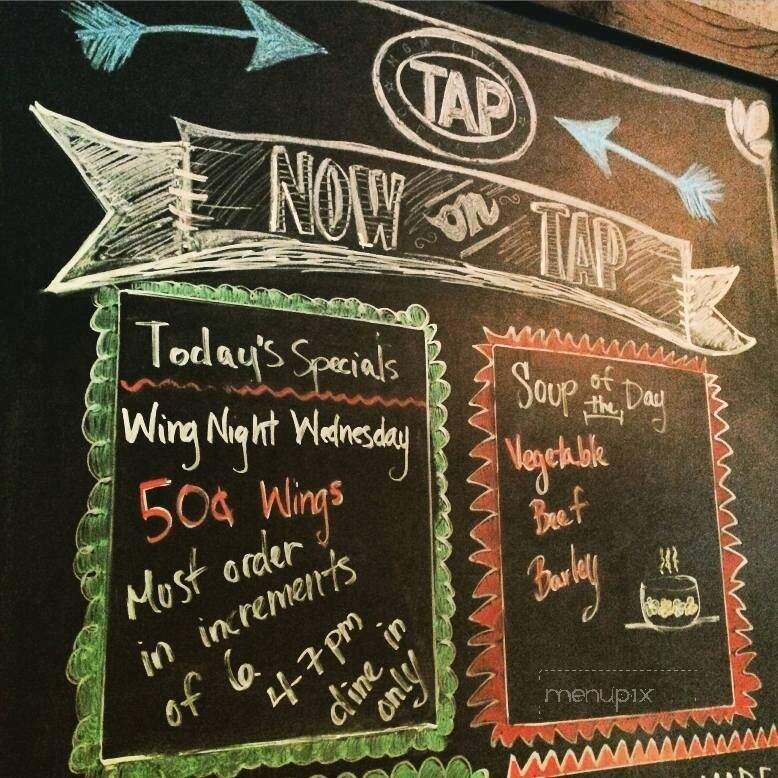 TAP
NOW on TAP
Today's Specials
Wing Night Wednesday
50¢ Wings
Must order
in increments
of 6.
4-7pm
dine in
only
Soup of the Day
Vegetable
Beef
Barley
menupix